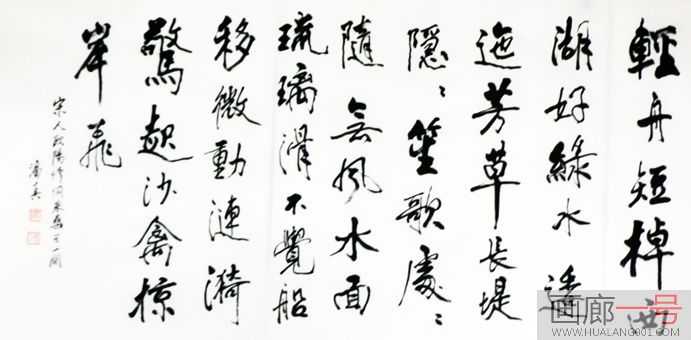 輕舟短棹西
湖好綠水逶
迤芳草長堤
隱〻笙歌處〻
隨無風水面
琉璃滑不覺船
移微動漣漪
驚起沙禽掠
岸飛
宋人歐陽修詞采桑子一闋
画廊一号
WWW.HUALANG001.COM